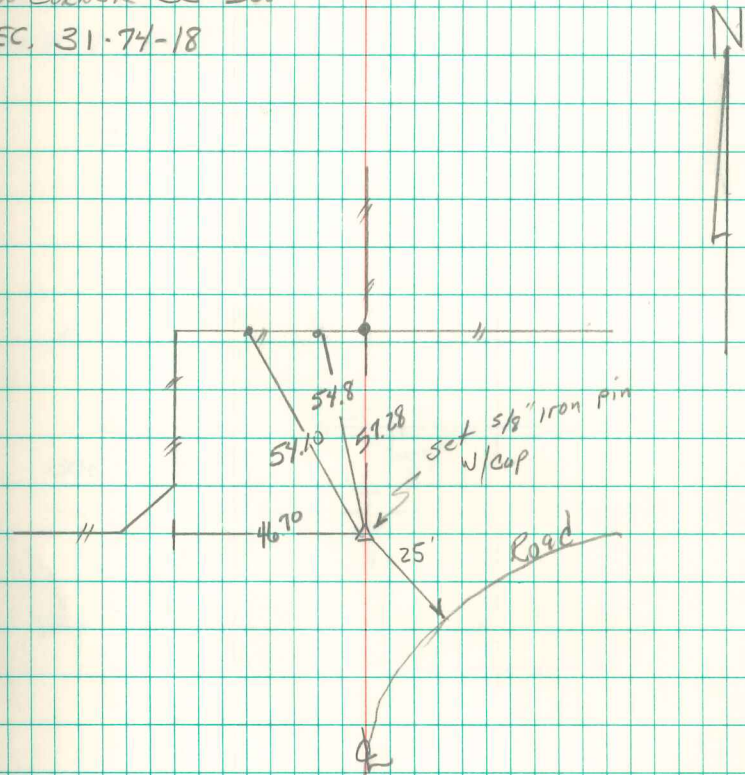 CORNER
EC. 31-74-18
N
54.8
54.10
57.28
set 5/8" iron pin
w/cap
46.70
25'
Road
℄